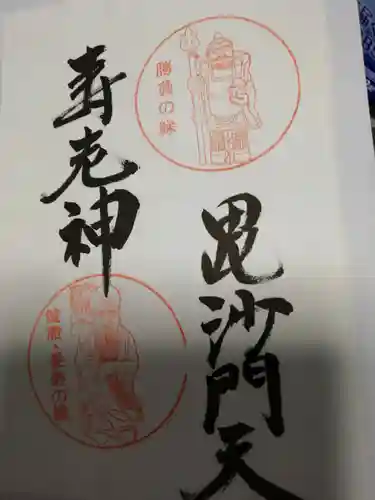 毘沙門天
勝負の縁
寿老神
健康・長寿の縁